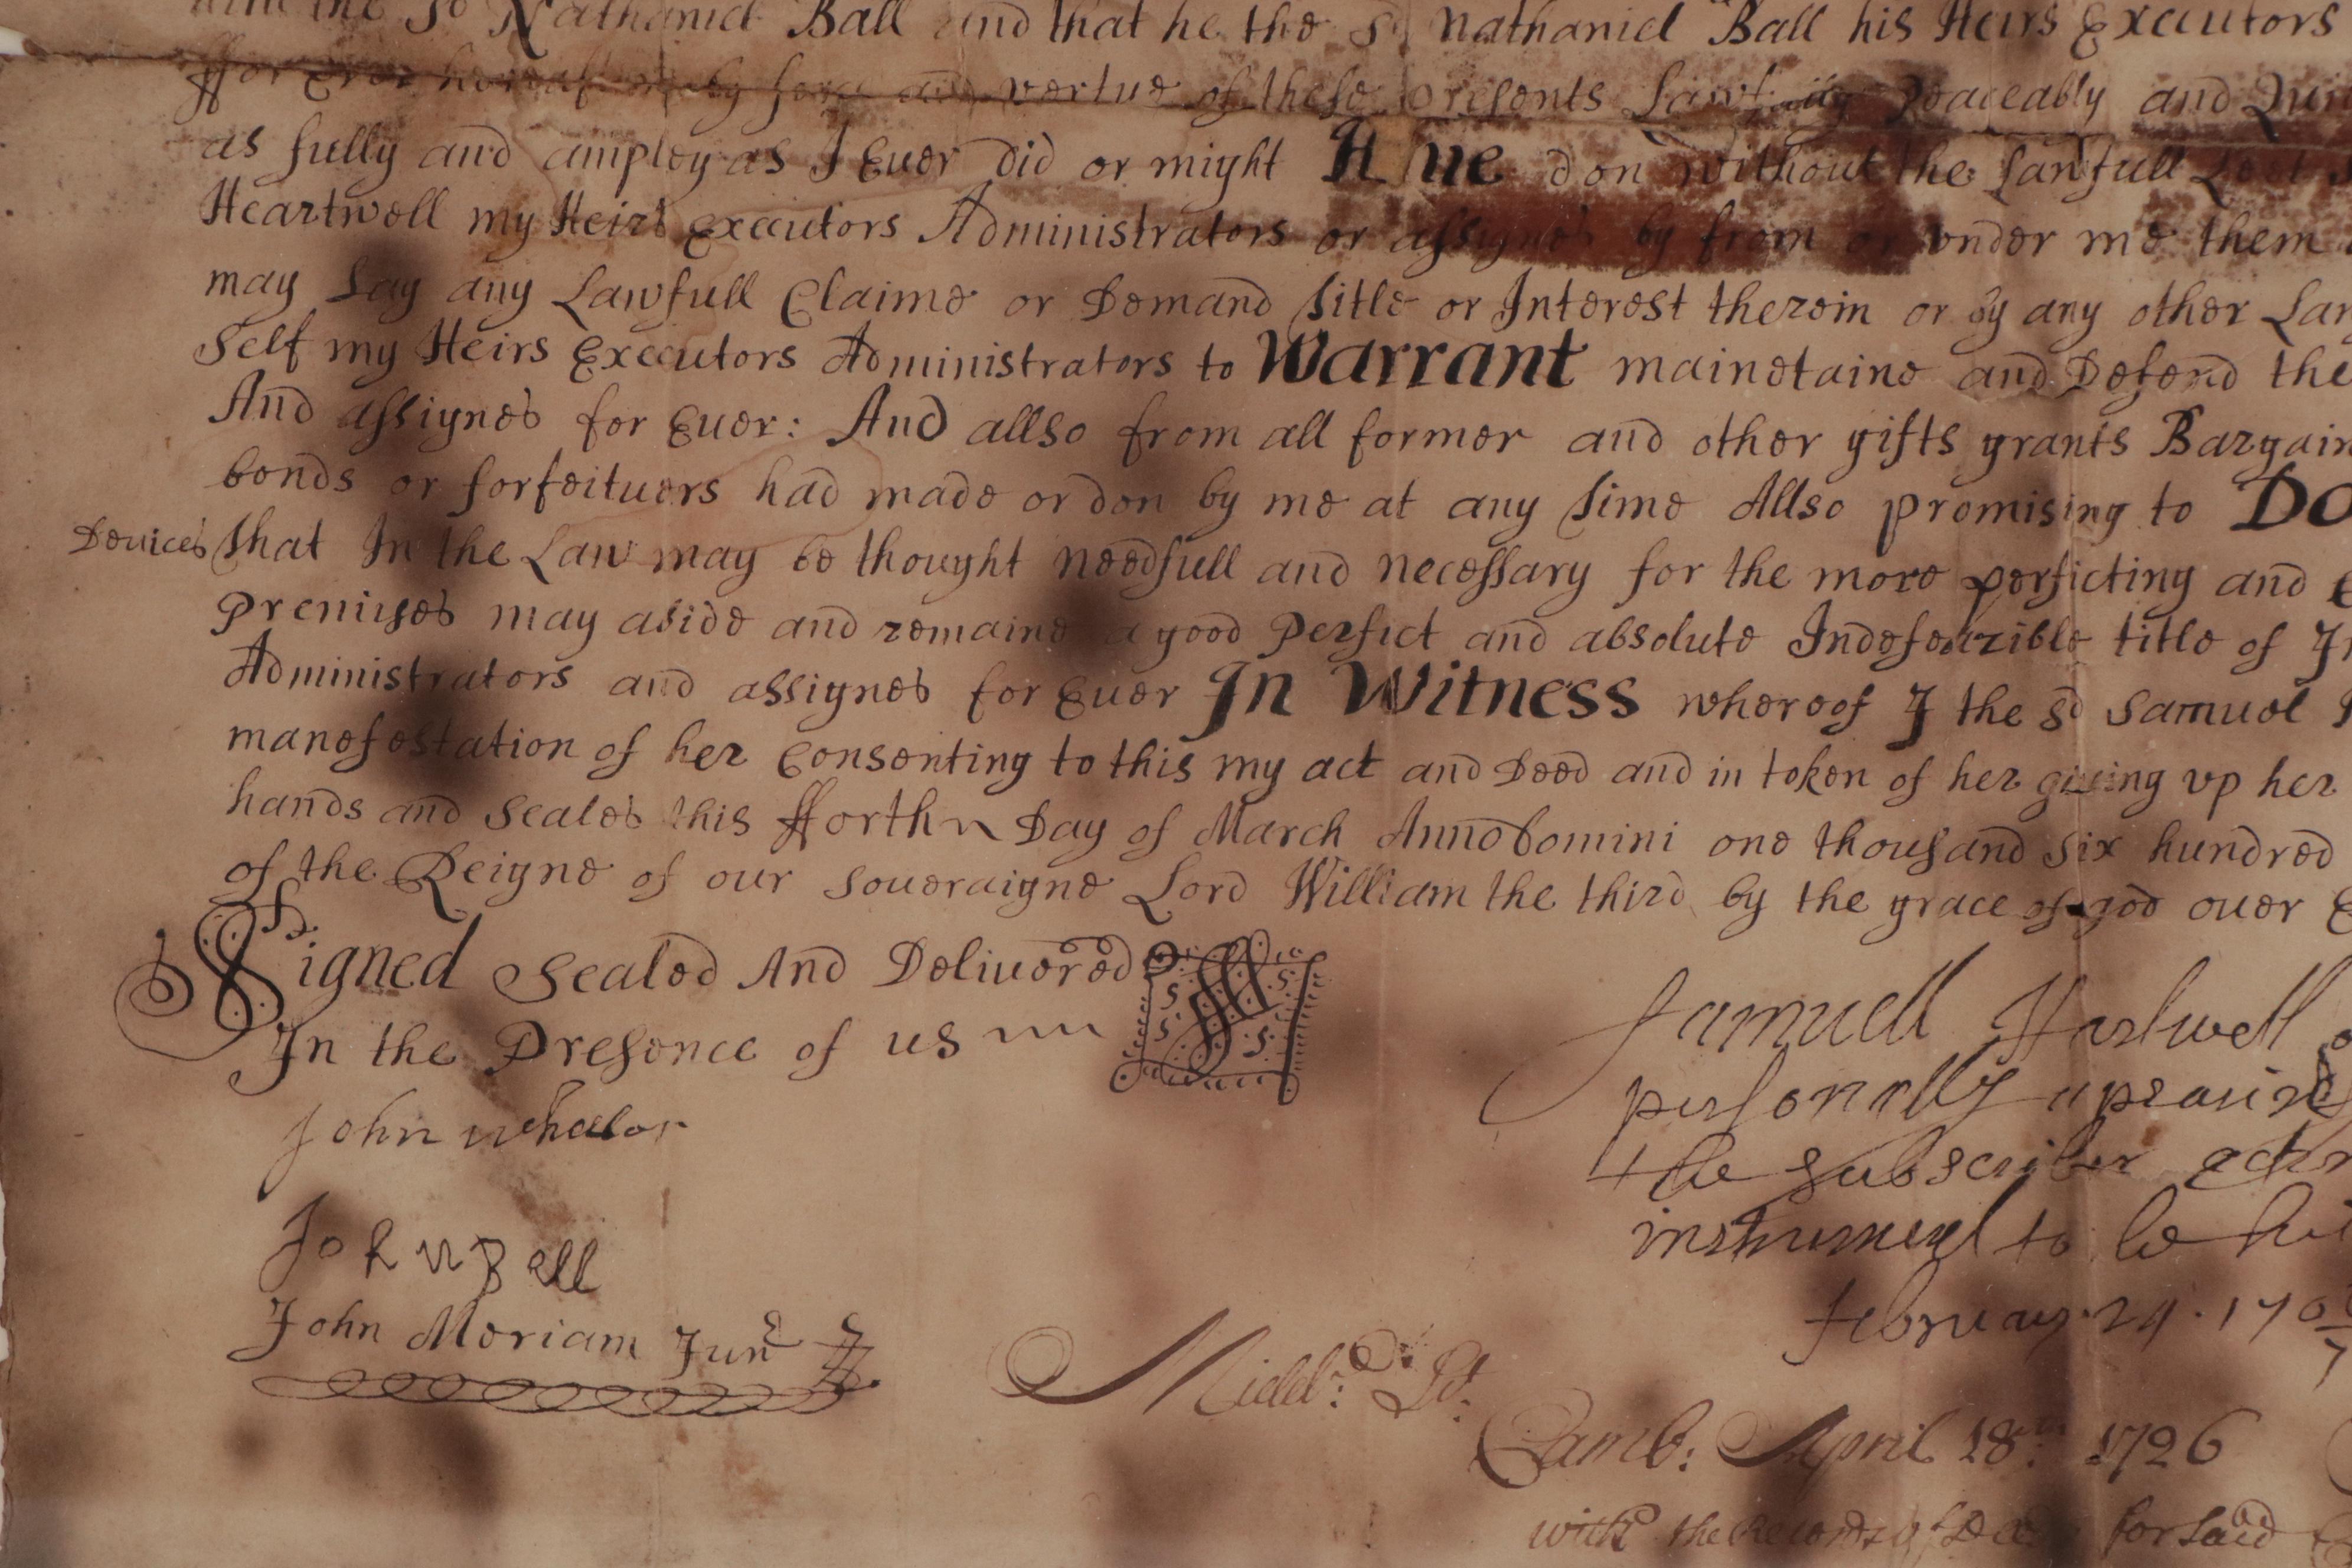 the sd Nathaniel Ball and that he the sd Nathaniel Ball his Heirs Executors
ffor Ever by force and vertue of these presents Lawfully Peaceably and
as fully and ampley as I Euer did or might Haue don without the Lawfull
Heartwell my Heirs Executors Administrators or assignes by from or vnder me them
may Lay any Lawfull Claime or Demand title or Interest therein or by any other
Self my Heirs Executors Administrators to Warrant mainetaine and Defend the
And assignes for Euer: And allso from all former and other gifts grants
bonds or forfeituers had made or don by me at any time Allso promising to Do
Deuices that In the Law may be thought needfull and necessary for the more perficting and
Premises may abide and remaine a good Perfict and absolute Indefeazible title of
Administrators and assignes for Euer In Witness whereof I the sd Samuel
manefestation of her Consenting to this my act and Deed and in token of her giuing vp her
hands and seales this fforth Day of March Anno domini one thousand six hundred
of the Reigne of our soueraigne Lord William the third by the grace of god ouer
Signed Sealed And Deliuered
In the Presence of us
Samuell Hartwell
personally
John wheeler
the subscriber
instrument to be
John Bell
February 24. 170
John Meriam Junr
Midd: Ss:
Camb: April 18th: 1726
with the Records of for said